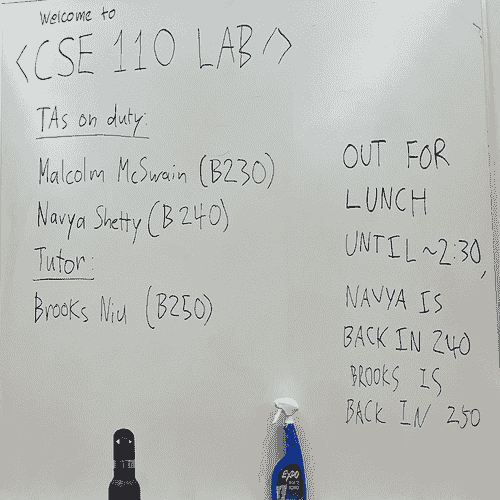 Welcome to
<CSE 110 LAB />
TAs on duty:
Malcolm McSwain (B230)
Navya Shetty (B240)
Tutor:
Brooks Niu (B250)
OUT FOR
LUNCH
UNTIL ~2:30,
NAVYA IS
BACK IN 240
BROOKS IS
BACK IN 250
EXPO